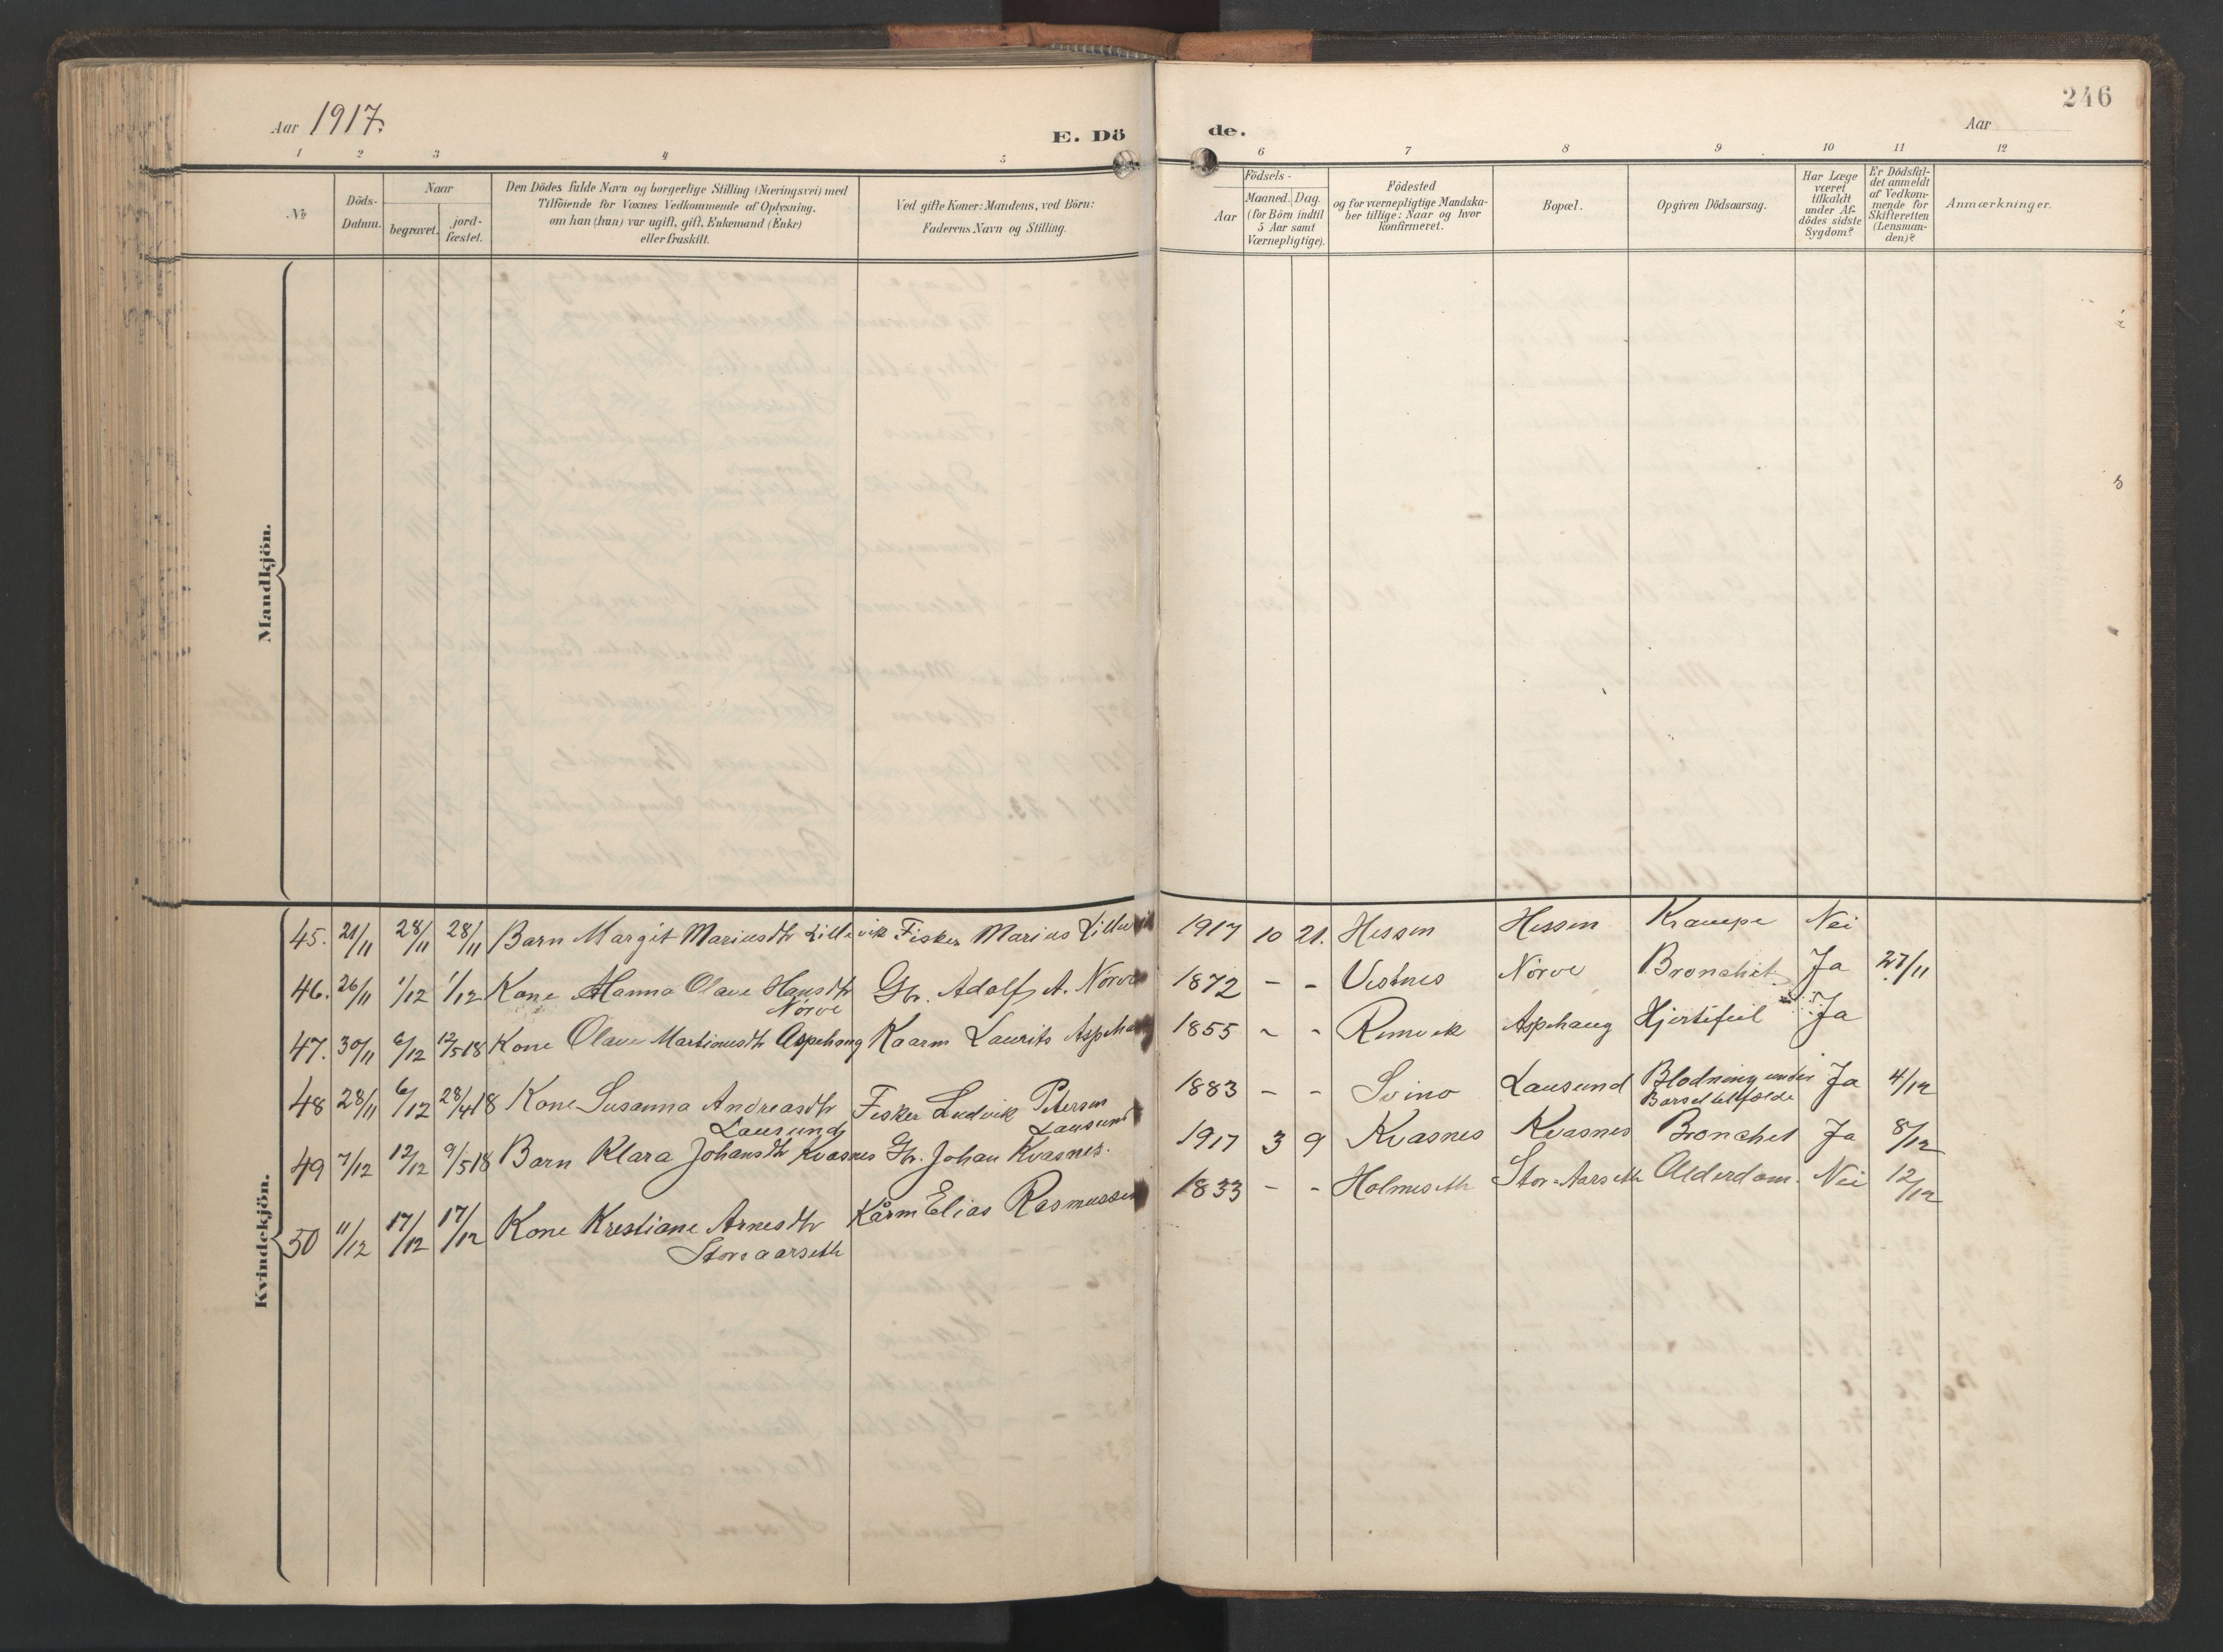 246
Aar 1917.
E. Döde.
Aar
1 2 3 4 5 6 7 8 9 10 11 12
No
Döds-Datum.
Naar
begravet.
jord-fæstet.
Den Dödes fulde Navn og borgerlige Stilling (Næringsvei) med
Tilföiende for Voxnes Vedkommende af Oplysning,
om han (hun) var ugift, gift, Enkemand (Enke)
eller fraskilt.
Ved gifte Koner: Mandens, ved Börn:
Faderens Navn og Stilling.
Födsels-
Aar
Maaned. Dag.
(for Börn indtil
5 Aar samt
Værnepligtige).
Födested
og for værnepligtige Mandska-
ber tillige: Naar og hvor
konfirmeret.
Bopæl.
Opgiven Dödsaarsag.
Har Læge
været
tilkaldt
under Af-
dödes sidste
Sygdom?
Er Dödsfal-
det anmeldt
af Vedkom-
mende for
Skifteretten
(Lensman-
den)?
Anmærkninger.
Mandkjön.
Kvindekjön.
45. 21/11 28/11 28/11 Barn Margit Mariusdtr Lillevik Fisker Marius Lillevik 1917 10 21. Hessen Hessen Krampe Nei
46. 26/11 1/12 1/12 Kone Hanna Olave Hansdtr Gbr. Adolf A. Nørve 1872 - - Vestnes Nørve Bronchit Ja 27/11
Nørve
47. 30/11 6/12 12/5 18 Kone Olave Martinusdtr Aspehaug Kaarm Laurits Aspehaug 1855 - - Remvik Aspehaug Hjertefeil Ja
48 28/11 6/12 28/4 18 Kone Susanna Andreasdtr Fisker Ludvik Petersen 1883 - - Svino Lausund Blodning under Ja 4/12
Lausund Lausund Barselstilfælde
49 7/12 12/12 9/5 18 Barn Klara Johansdtr Kvasnes Gbr. Johan Kvasnes. 1917 3 9 Kvasnes Kvasnes Bronchit Ja 8/12
50 11/12 17/12 17/12 Kone Krestiane Arnesdtr Kårm Elias Rasmussen 1833 - - Holmeseth Stor-Aarseth Alderdom. Nei 12/12
Storeaarseth